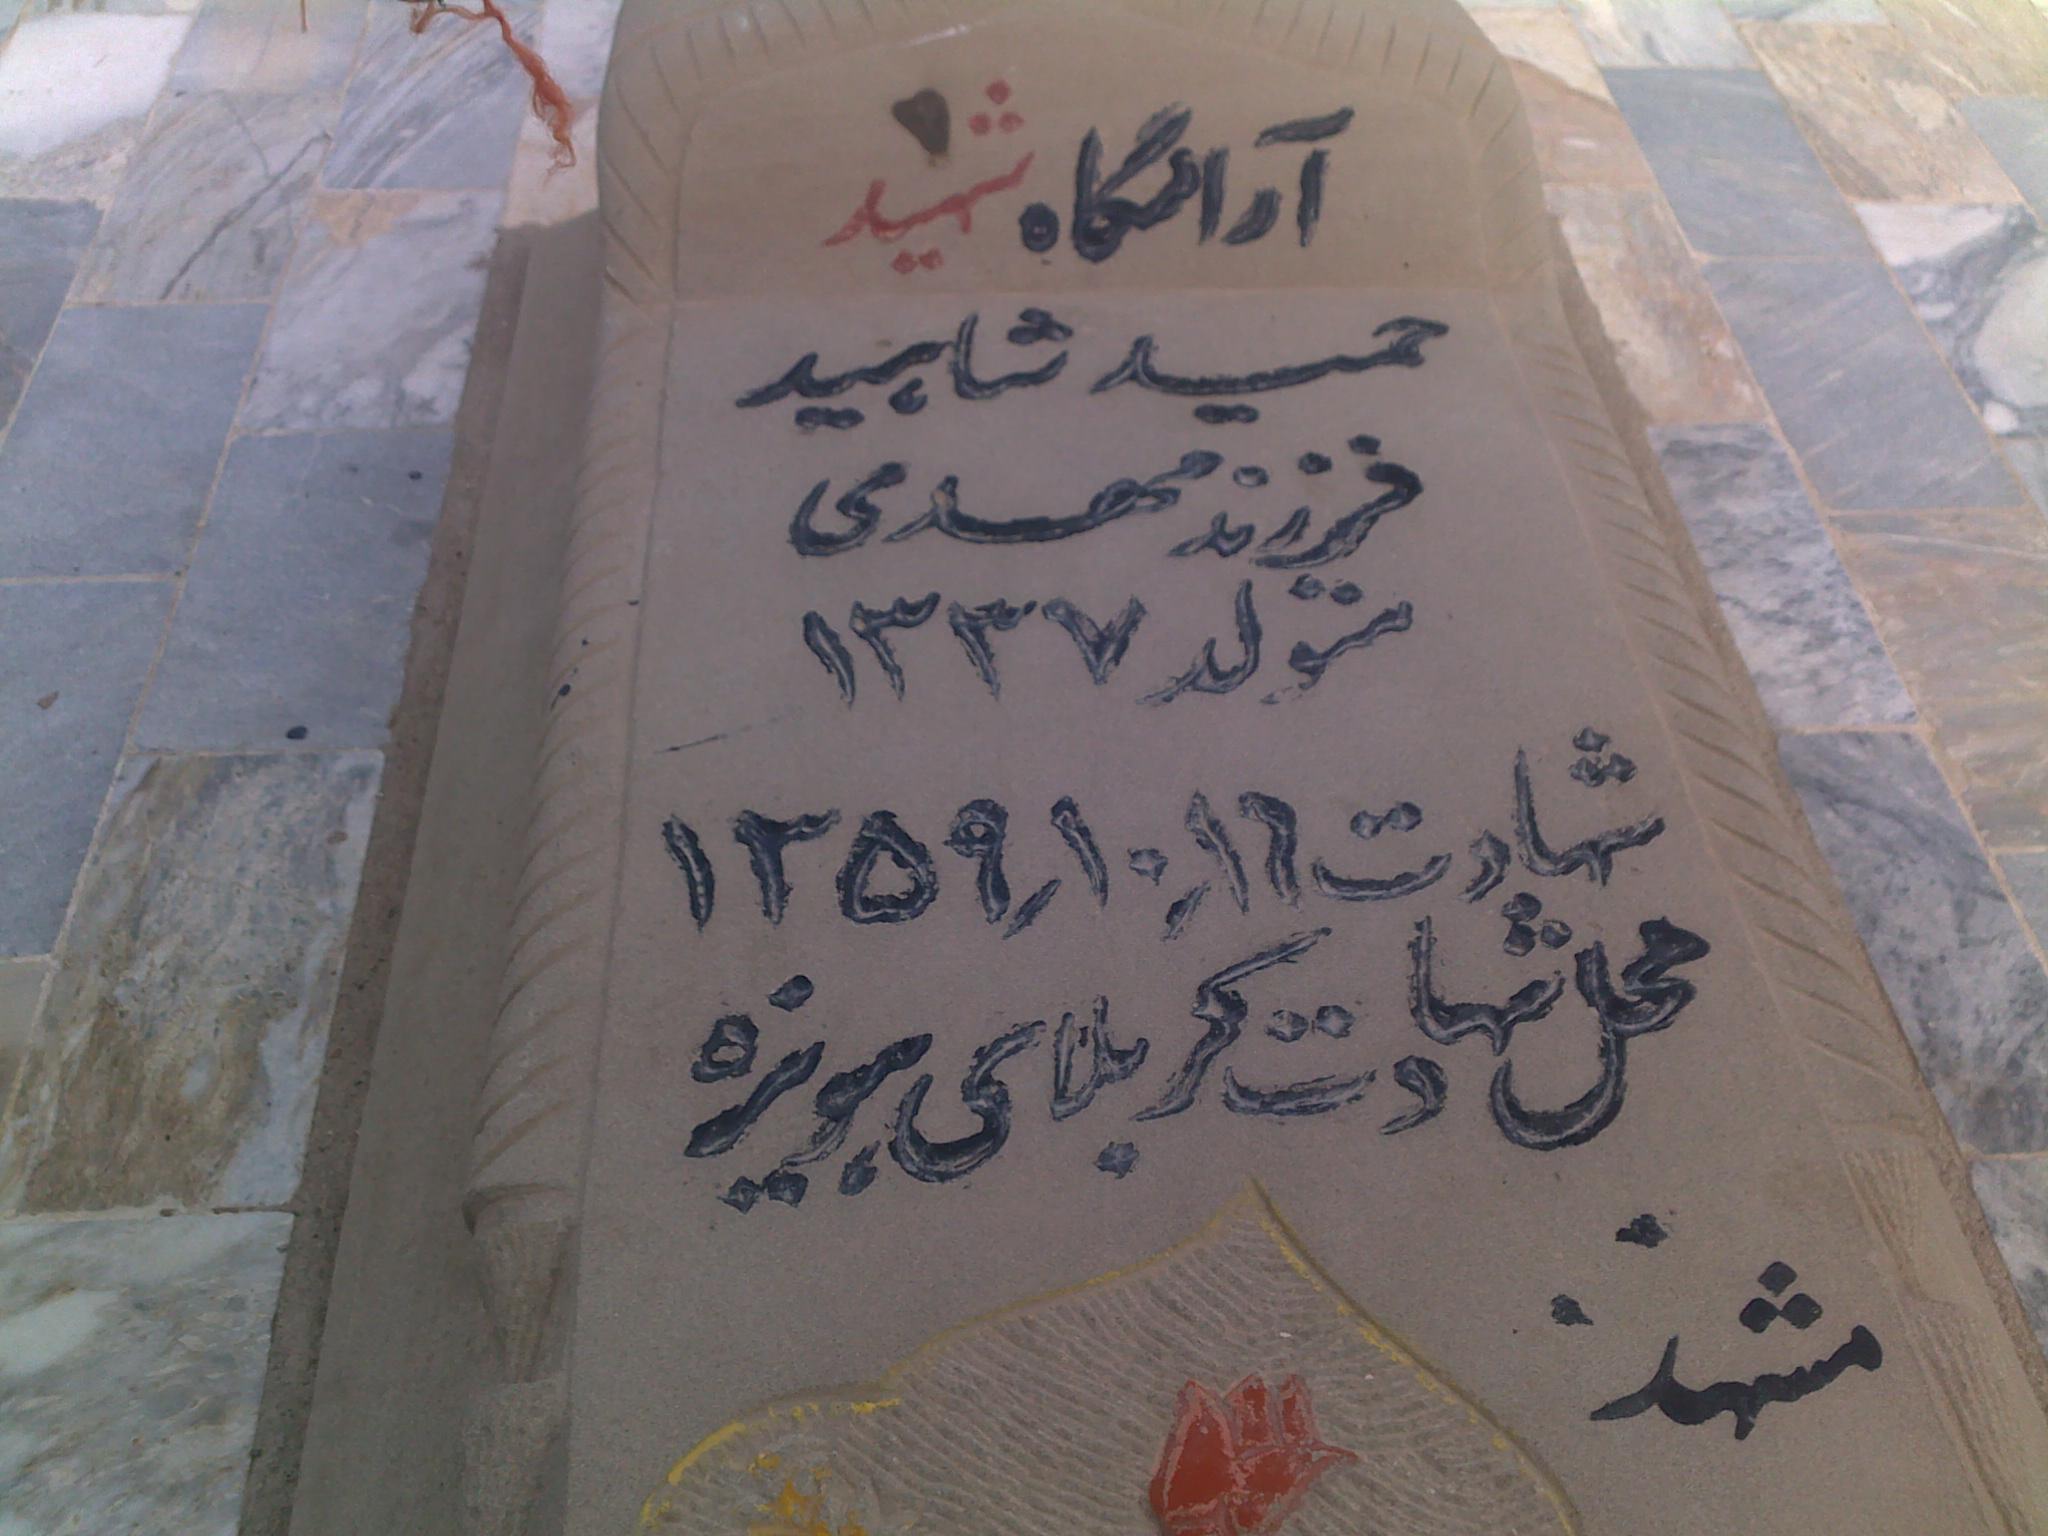 آرامگاه شهید
حمید شاهید
فرزند مهدی
متولد ۱۳۳۷
شهادت ۱۶٫۱۰٫۱۳۵۹
محل شهادت کربلای هویزه
مشهد